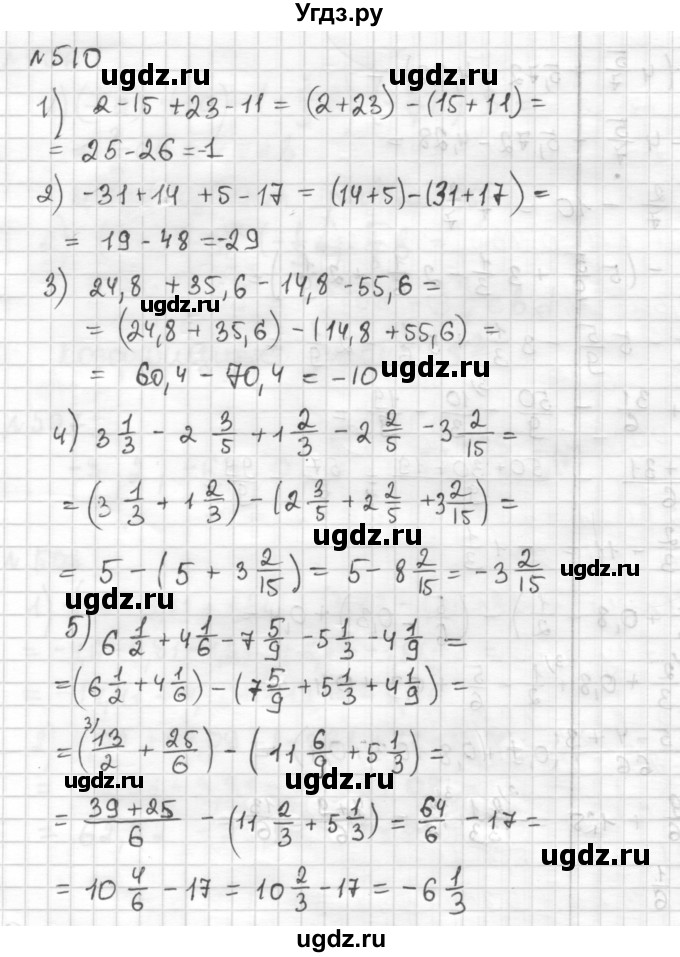 Угдз.ру
№510
ugdz.ru ugdz.ru
1) 2-15+23-11 = (2+23)-(15+11) =
= 25-26=-1
ugdz.ru
2) -31+14+5-17 = (14+5)-(31+17) =
= 19-48=-29
3) 24,8+35,6-14,8-55,6 =
ugdz.ru
= (24,8+35,6)-(14,8+55,6) =
= 60,4-70,4 = -10 ugdz.ru
4) 3 1/3 - 2 3/5 + 1 2/3 - 2 2/5 - 3 2/15 =
ugdz.ru
= (3 1/3 + 1 2/3) - (2 3/5 + 2 2/5 + 3 2/15) =
ugdz.ru
= 5 - (5 + 3 2/15) = 5 - 8 2/15 = -3 2/15 ugdz.ru
5) 6 1/2 + 4 1/6 - 7 5/9 - 5 1/3 - 4 1/9 =
ugdz.ru
= (6 1/2 + 4 1/6) - (7 5/9 + 5 1/3 + 4 1/9) =
= (3) 13/2 + 25/6) - (11 6/9 + 5 1/3) =
ugdz.ru ugdz.ru
= (39+25)/6 - (11 2/3 + 5 1/3) = 64/6 - 17 =
ugdz.ru
= 10 4/6 - 17 = 10 2/3 - 17 = -6 1/3
ugdz.ru